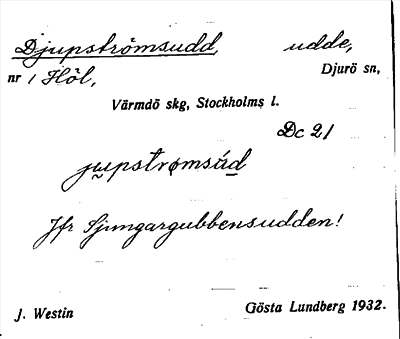 Djupströmsudd, udde,
nr 1 Höl, Djurö sn,
Värmdö skg, Stockholms l.
Dc 21
jupstrømsùd
Jfr Sjungargubbensudden!
J. Westin Gösta Lundberg 1932.